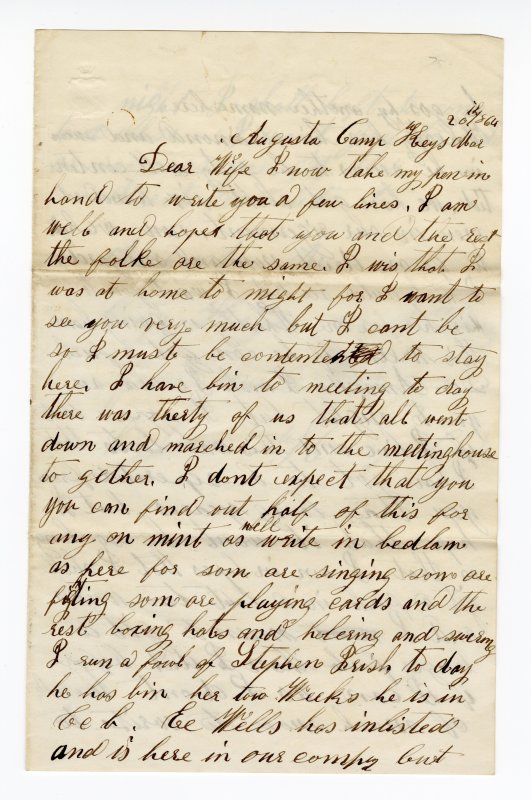 20th 1864
Augusta Camp Keys Mar
Dear Wife I now take my pen in
hand to write you a few lines. I am
well and hopes that you and the rest
the folke are the same. I wis that I
was at home to night for I want to
see you very much but I cant be
so I must be contented to stay
here. I have bin to meeting to day
there was therty of us that all went
down and marched in to the meetinghouse
to gether. I dont expect that you
you can find out half of this for
any on mint as well write in bedlam
as here for som are singing som are
fiting som are playing cards and the
rest boxing hats and holering and swering
I run a fowl of Stephen Irish to day
he has bin her two Weeks he is in
Co b. Ee Wells has inlisted
and is here in our compy but